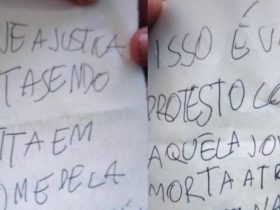 E A JUSTIÇA
TA SENDO
ITA EM
OME DELA
ISSO É U
PROTESTO CO
AQUELA JO
MORTA ATR